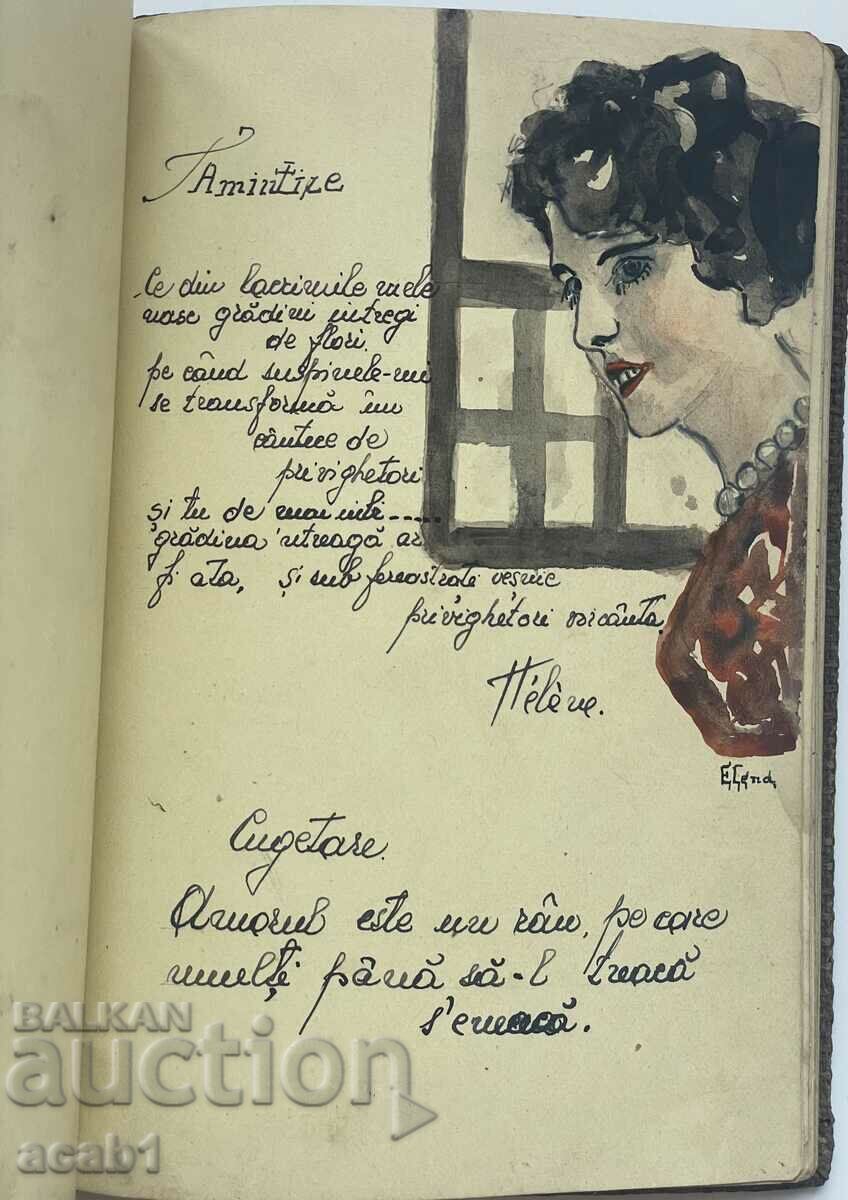 Amintire
Ce din lacrimile mele
nasc grădini intregi
de flori.
pe când suspinele-mi
se transformă în
cântece de
privighetori
și tu de mai iubi.....
grădina 'ntreagă ar
fi ata, și sub fereastrati veșnic
privighetori vor cânta.
Hélène.
Elena
Cugetare.
Amorul este un râu, pe care
mulți până să-l treacă
s'eneacă.
BALKAN
auction
acab1